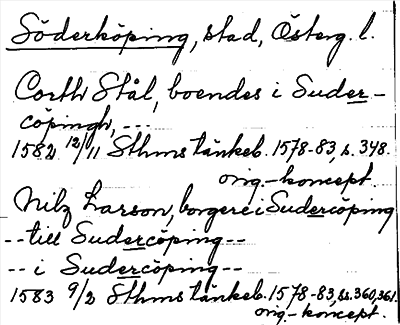 Söderköping, stad, Österg. l.
Corth Stål, boendes i Suder-
cöpingh, ---
1582 12/11 Sthms tänkeb. 1578-83, s. 348.
orig.-koncept.
Nilz Larson, borgere i Sudercöping
-- till Sudercöping --
-- i Sudercöping --
1583 9/2 Sthms tänkeb. 1578-83, ss. 360, 361.
orig.-koncept.